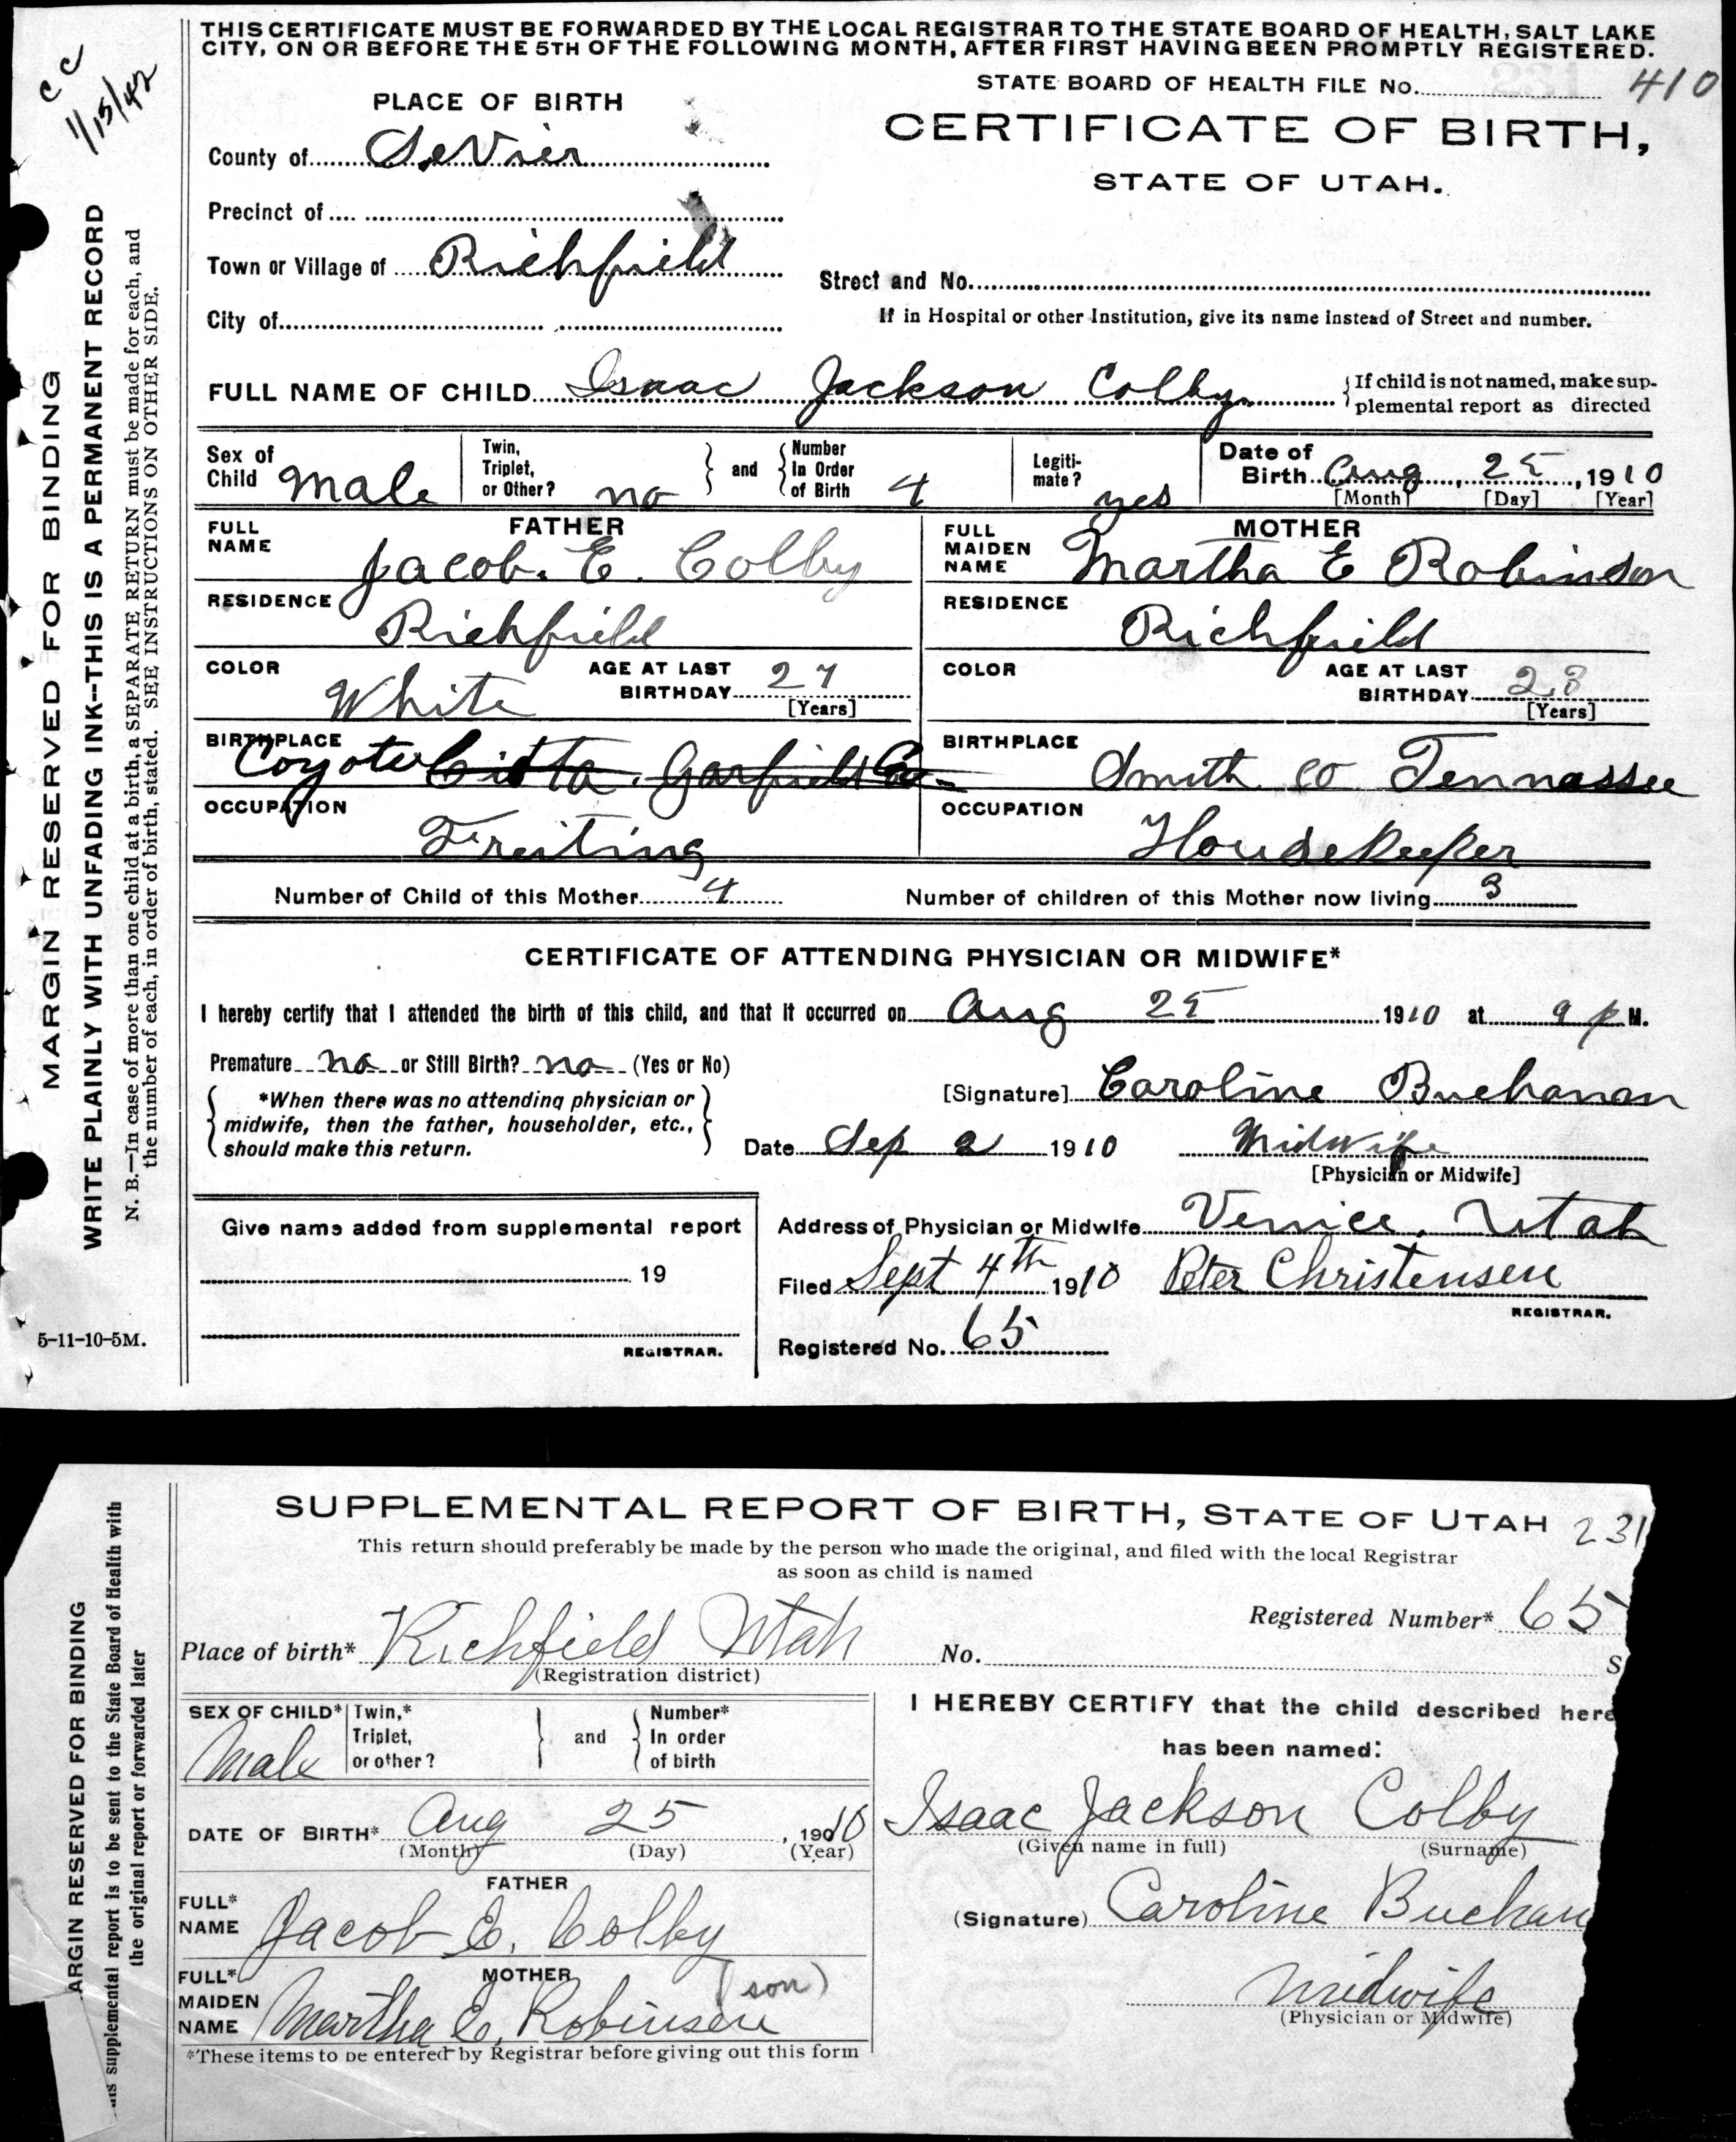 THIS CERTIFICATE MUST BE FORWARDED BY THE LOCAL REGISTRAR TO THE STATE BOARD OF HEALTH, SALT LAKE
CITY, ON OR BEFORE THE 5TH OF THE FOLLOWING MONTH, AFTER FIRST HAVING BEEN PROMPTLY REGISTERED.
CC
1/15/42
STATE BOARD OF HEALTH FILE No. 410
PLACE OF BIRTH
CERTIFICATE OF BIRTH,
STATE OF UTAH.
County of SeVier
Precinct of
Town or Village of Richfield
Street and No.
City of
If in Hospital or other Institution, give its name instead of Street and number.
FULL NAME OF CHILD Isaac Jackson Colby
If child is not named, make sup-
plemental report as directed
Sex of Child Male
Twin, Triplet, or Other? no
and Number In Order of Birth 4
Legiti-mate? yes
Date of Birth Aug 25, 1910
[Month] [Day] [Year]
FATHER
FULL NAME Jacob. E. Colby
MOTHER
FULL MAIDEN NAME Martha E Robinson
RESIDENCE Richfield
RESIDENCE Richfield
COLOR White
AGE AT LAST BIRTHDAY 27
[Years]
COLOR
AGE AT LAST BIRTHDAY 28
[Years]
BIRTHPLACE Coyote Garfield Co.
BIRTHPLACE Smith co Tennassee
OCCUPATION Freiting
OCCUPATION Housekeeper
Number of Child of this Mother 4
Number of children of this Mother now living 3
CERTIFICATE OF ATTENDING PHYSICIAN OR MIDWIFE*
I hereby certify that I attended the birth of this child, and that it occurred on Aug 25 1910 at 9 p M.
Premature no or Still Birth? no (Yes or No)
*When there was no attending physician or
midwife, then the father, householder, etc.,
should make this return.
[Signature] Caroline Buchanan
Date Sep 2 1910 Midwife
[Physician or Midwife]
Give name added from supplemental report
19
REGISTRAR.
Address of Physician or Midwife Venice, Utah
Filed Sept 4th 1910 Peter Christensen
REGISTRAR.
Registered No. 65
MARGIN RESERVED FOR BINDING
WRITE PLAINLY WITH UNFADING INK--THIS IS A PERMANENT RECORD
N. B.—In case of more than one child at a birth, a SEPARATE RETURN must be made for each, and
the number of each, in order of birth, stated. SEE INSTRUCTIONS ON OTHER SIDE.
5-11-10-5M.
SUPPLEMENTAL REPORT OF BIRTH, STATE OF UTAH 231
This return should preferably be made by the person who made the original, and filed with the local Registrar
as soon as child is named
Registered Number* 65
Place of birth* Richfield Utah
(Registration district)
No. S
SEX OF CHILD* Male
Twin,* Triplet, or other?
and Number* In order of birth
DATE OF BIRTH* Aug 25, 1910
(Month) (Day) (Year)
FATHER
FULL* NAME Jacob E. Colby
MOTHER
FULL* MAIDEN NAME Martha E. Robinsen (son)
*These items to be entered by Registrar before giving out this form
I HEREBY CERTIFY that the child described here
has been named:
Isaac Jackson Colby
(Given name in full) (Surname)
(Signature) Caroline Buchan
Midwife
(Physician or Midwife)
ARGIN RESERVED FOR BINDING
supplemental report is to be sent to the State Board of Health with
the original report or forwarded later